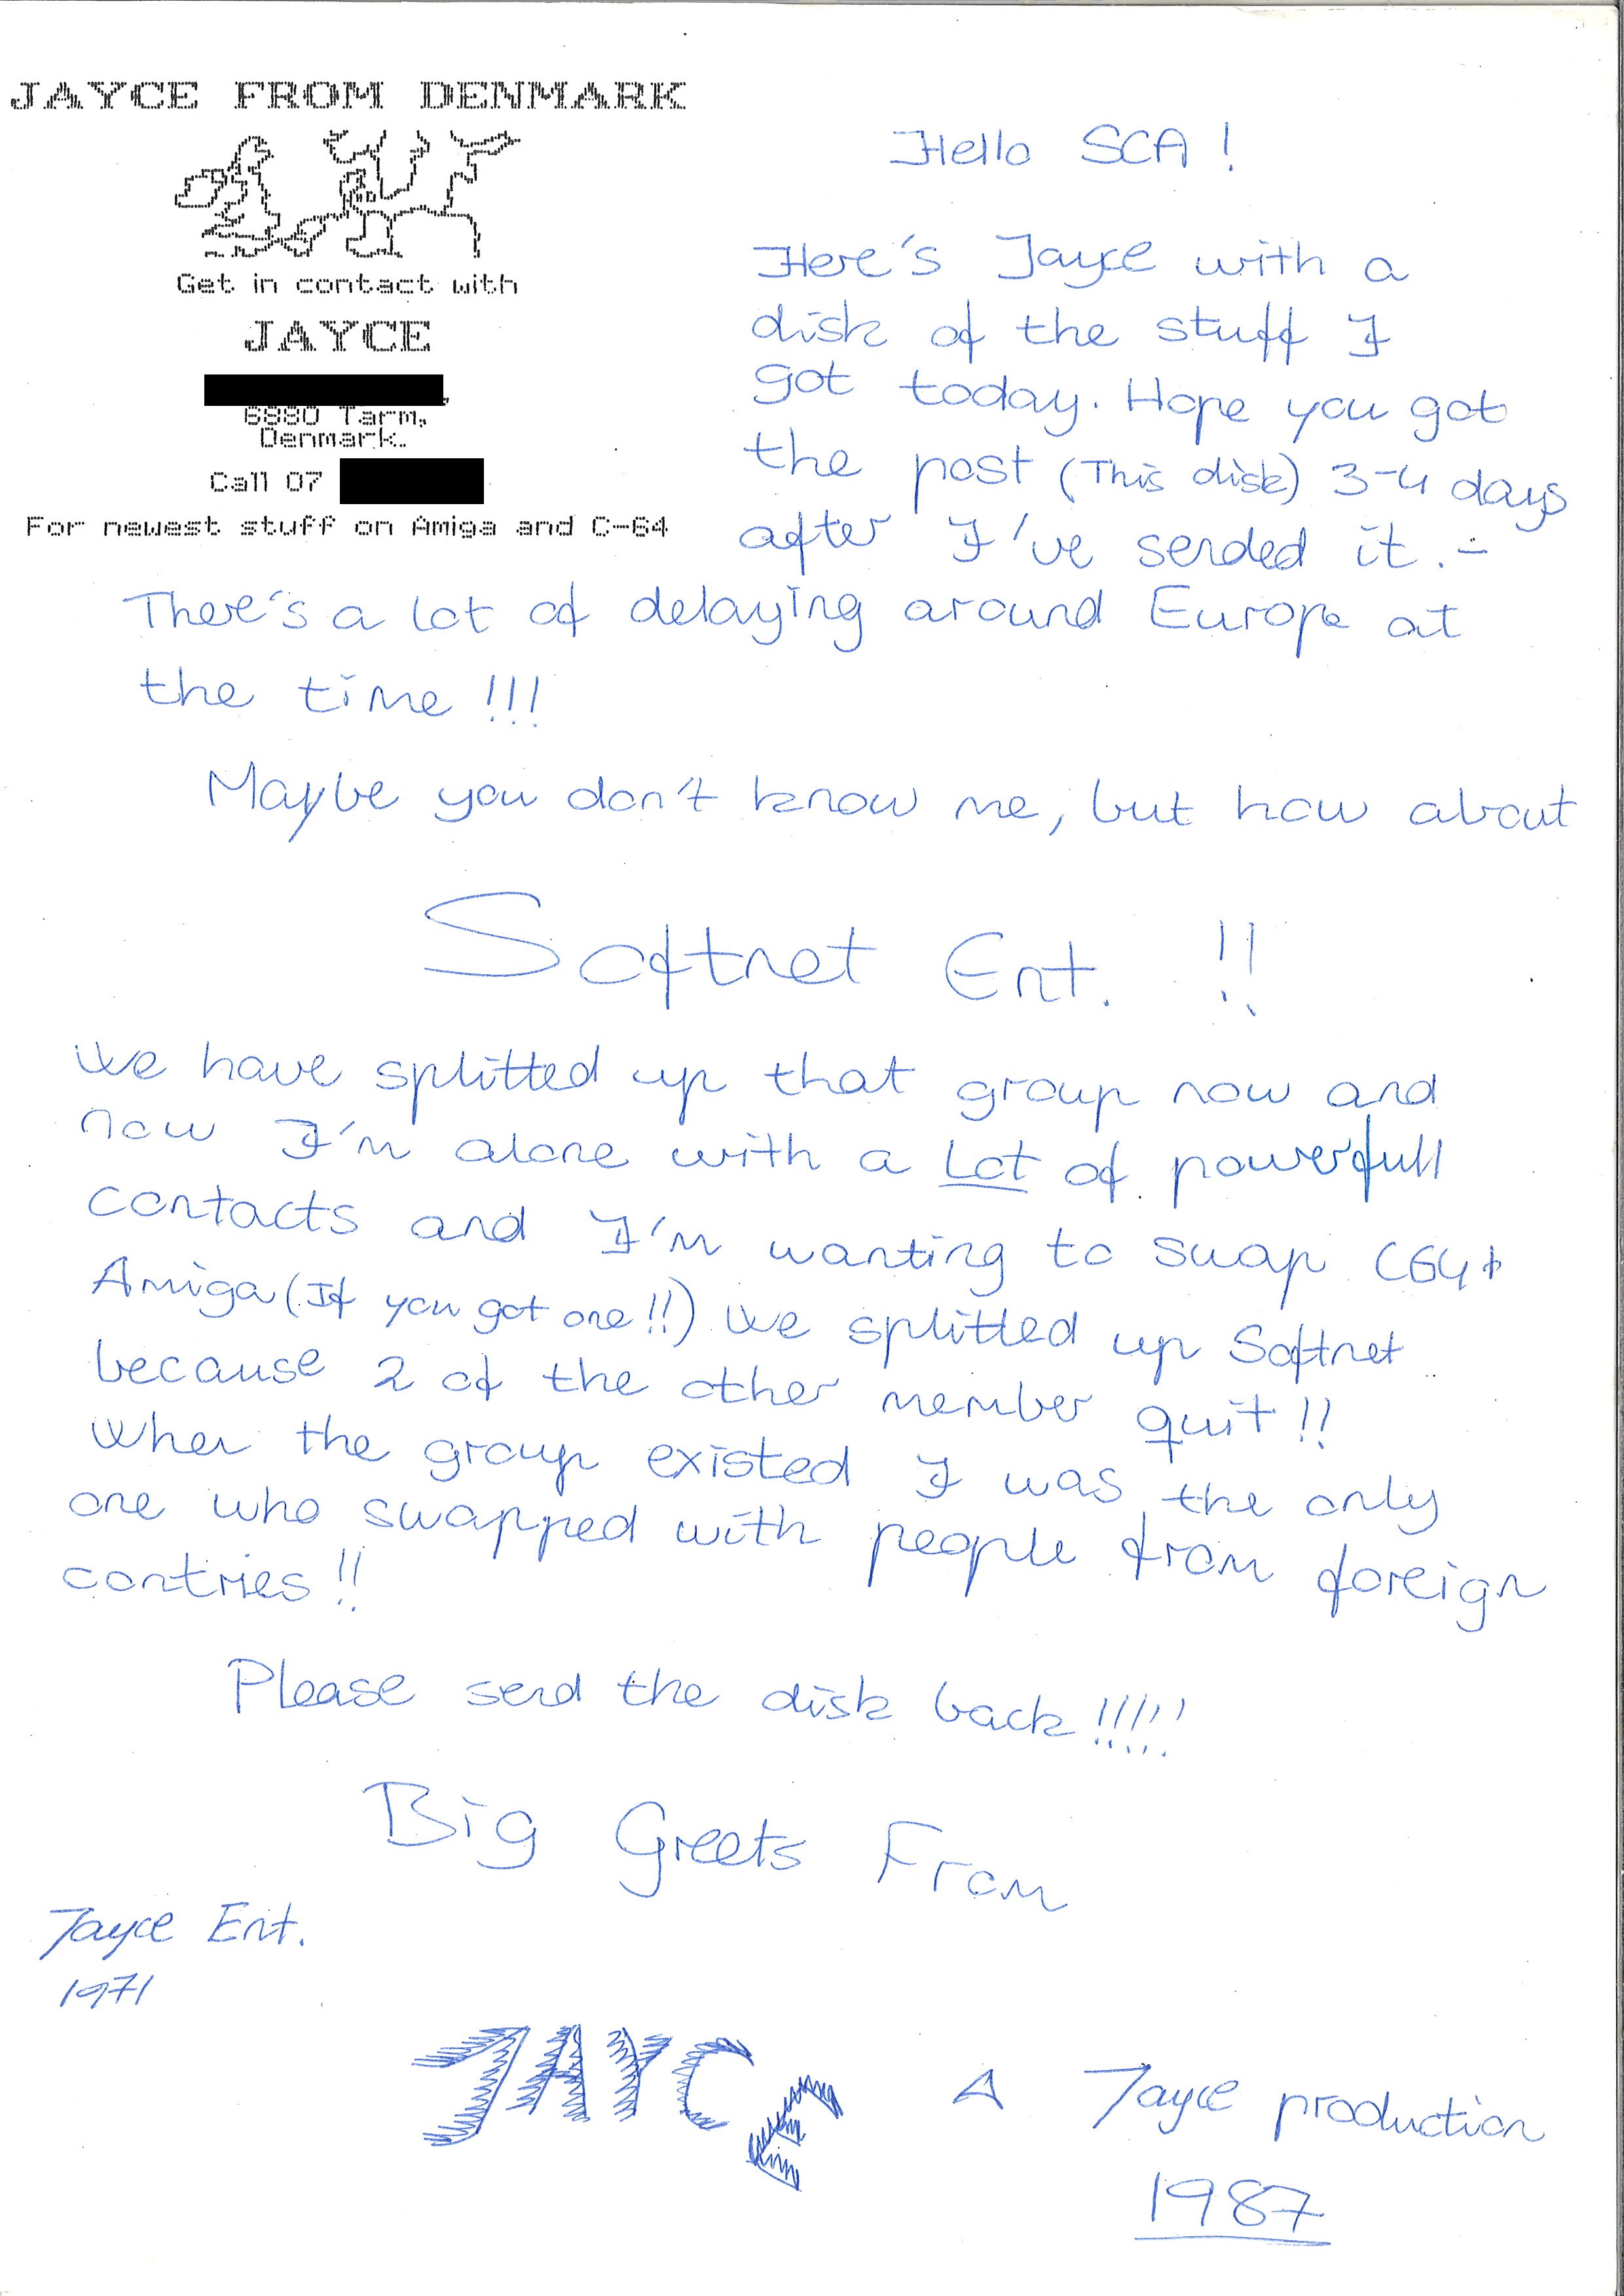 JAYCE FROM DENMARK
Get in contact with
JAYCE
6880 Tarm,
Denmark.
Call 07
For newest stuff on Amiga and C-64
Hello SCA !
Here's Jayce with a
disk of the stuff I
got today. Hope you got
the post (This disk) 3-4 days
after I've sended it. -
There's a lot of delaying around Europe at
the time !!!
Maybe you don't know me, but how about
Softnet Ent. !!
We have splitted up that group now and
now I'm alone with a Lot of powerfull
contacts and I'm wanting to swap C64+
Amiga (If you got one!!) We splitted up Softnet
because 2 of the other member quit!!
When the group existed I was the only
one who swapped with people from foreign
contries!!
Please send the disk back!!!!!
Big Greets From
Jayce Ent.
1971
JAYCE
A Jayce production
1987